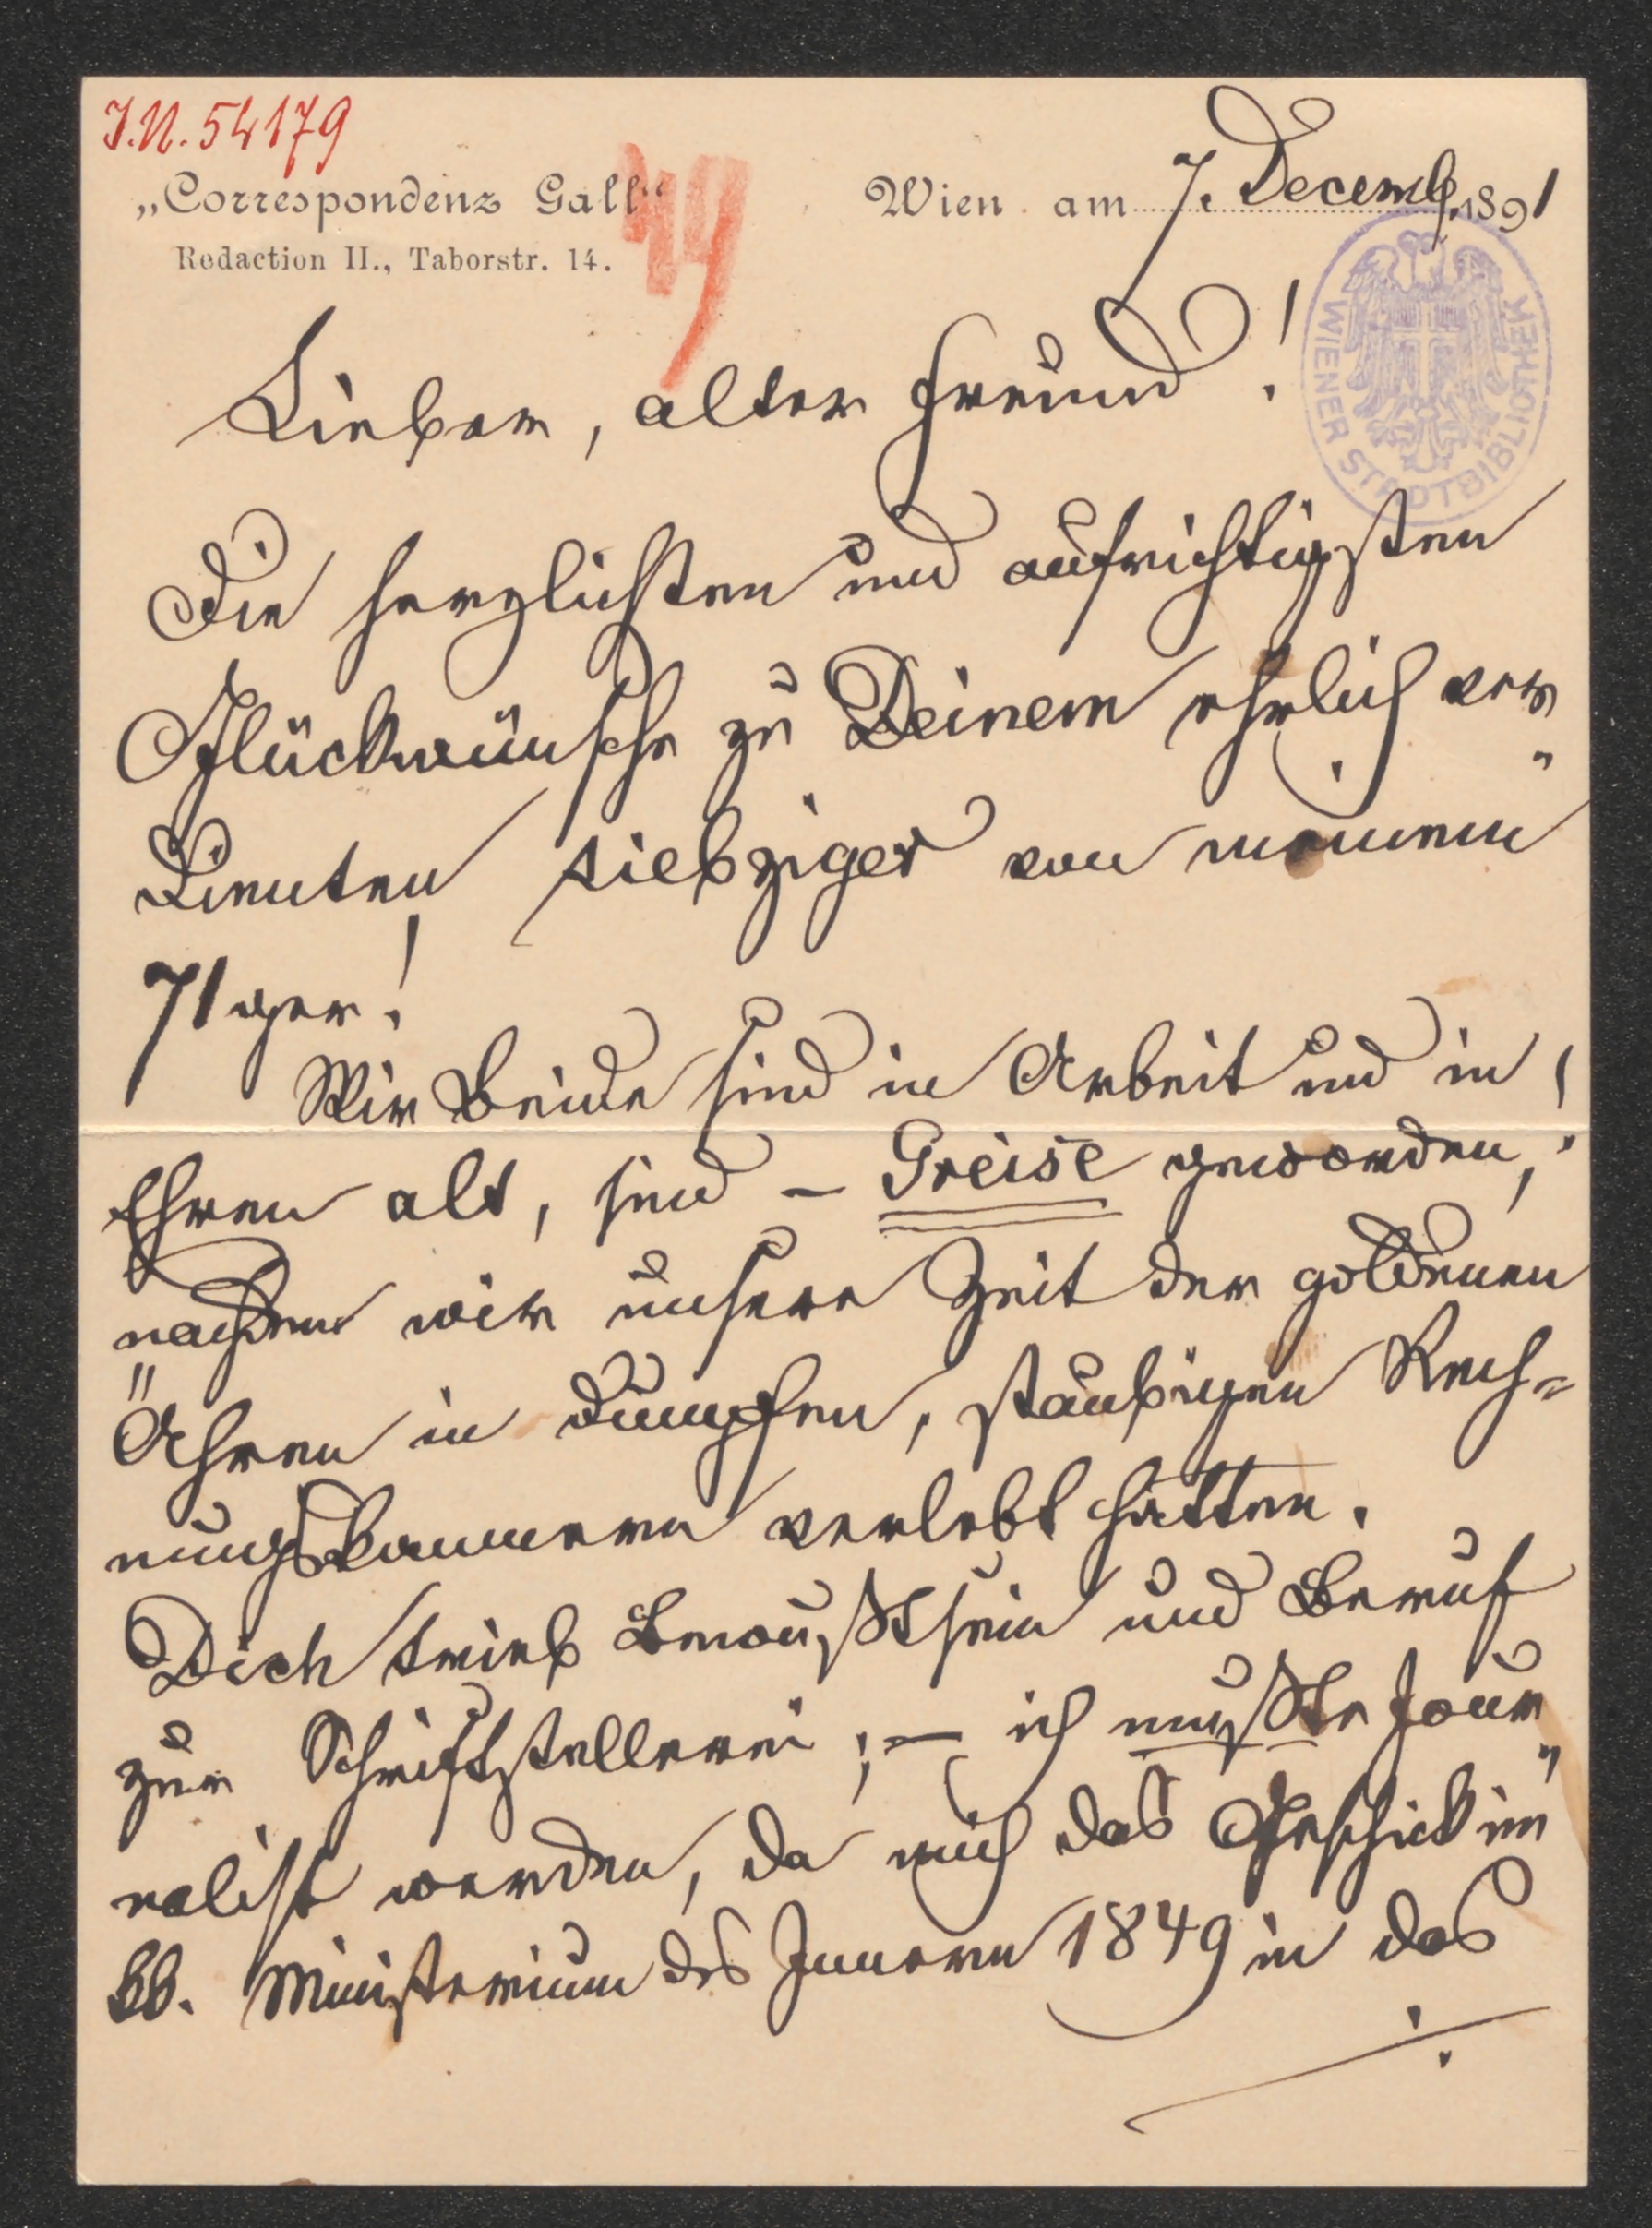 J.N. 54179
„Correspondenz Gall“
Redaction II., Taborstr. 14.
Wien am 7. Decemb. 1891
WIENER STADTBIBLIOTHEK
Lieber, alter Freund!
Die herzlichsten und aufrichtigsten
Glückwünsche zu Deinem ehrlich ver„
dienten siebziger von meinem
71ger!
Wir Beide sind in Arbeit und in
Ehren alt, sind – Greise geworden,!
nachdem wir unsere Zeit der goldenen
Ähren in dumpfen, staubigen Rech-
nungskammern verlebt hatten.
Dich trieb Bewußtsein und Beruf
zur Schriftstellerei; – ich mußte Jour„
nalist werden, da mich das Geschick im
kk. Ministerium des Innern 1849 in das
./.